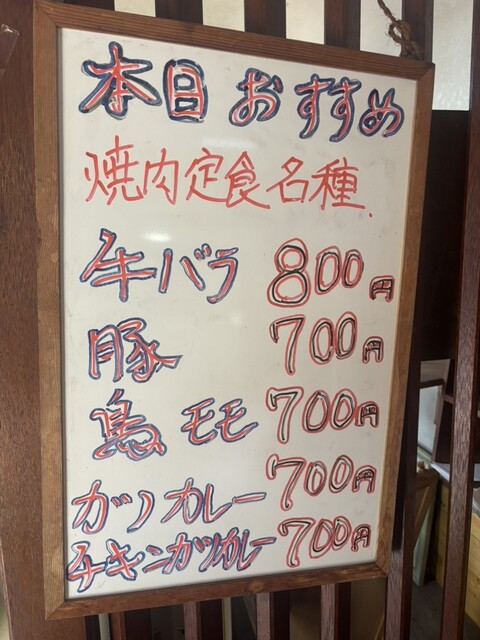 本日おすすめ
焼肉定食名種、
牛バラ 800円
豚 700円
鳥モモ 700円
ガツカレー 700円
チキンカツカレー 700円